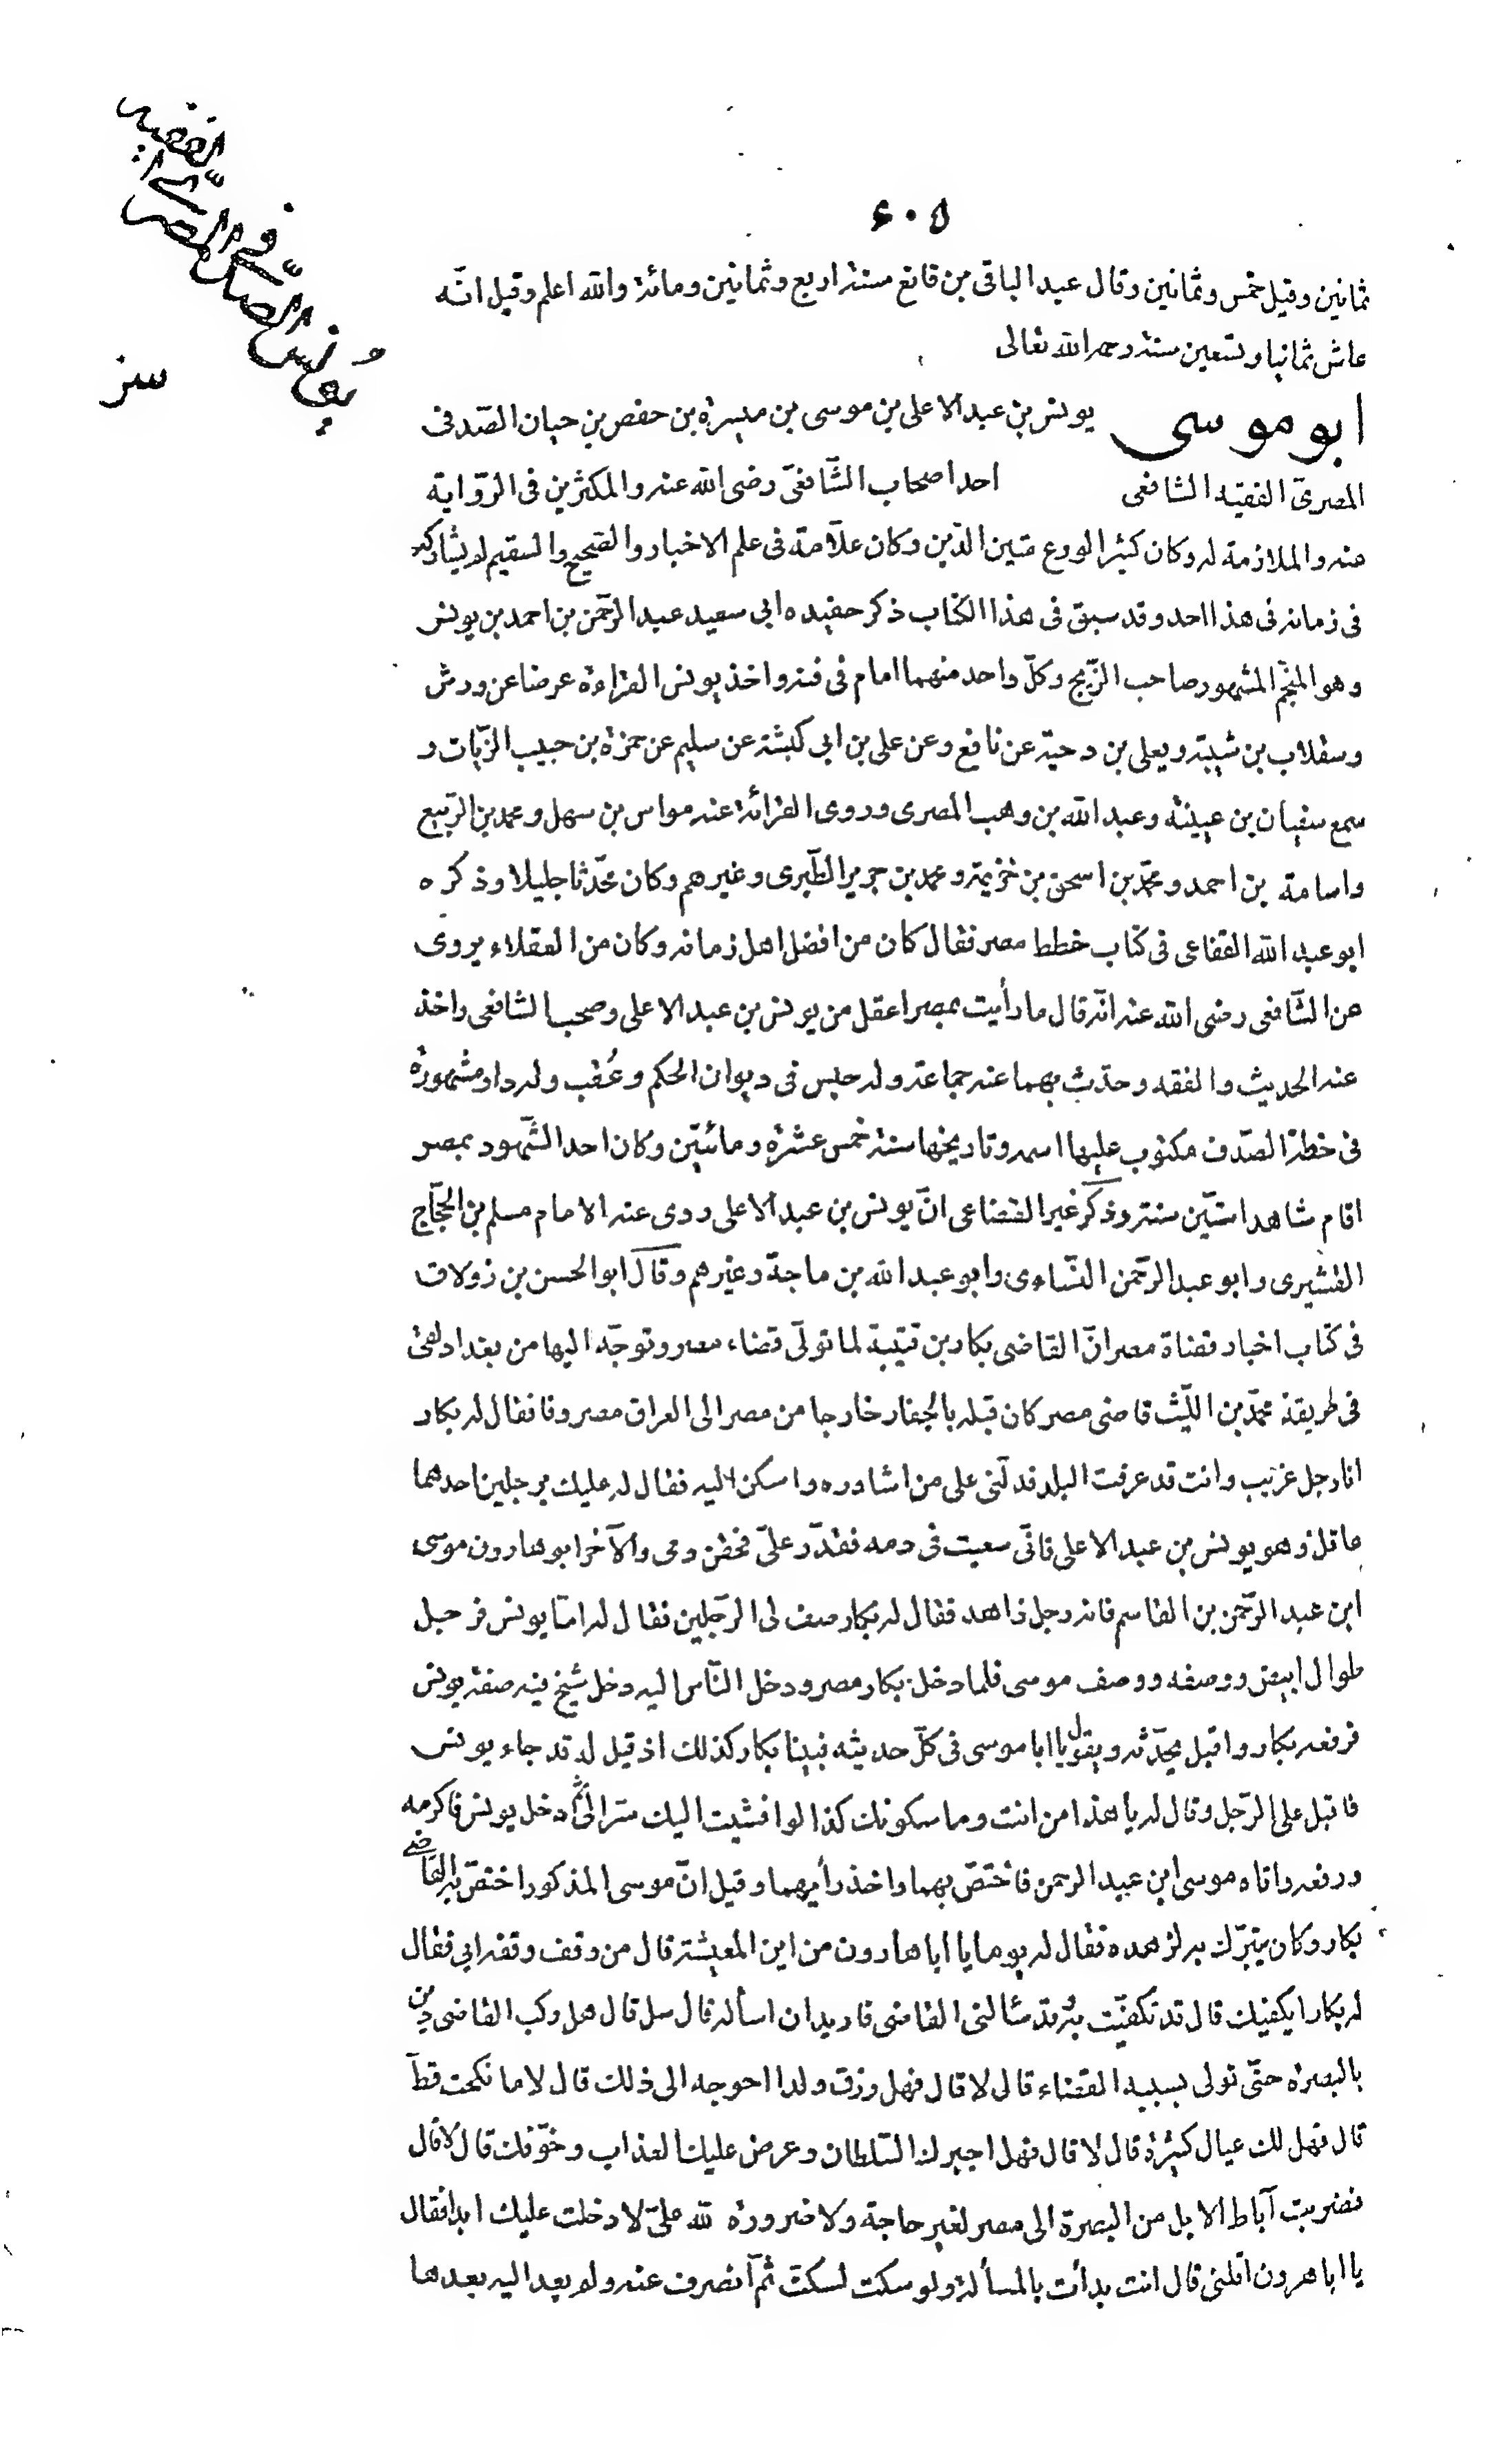 ٦٠٥
يونس الصدفي المصري الفقيه
ثمانين وقيل خمس وثمانين وقال عبد الباقى بن قانع سنة اربع وثمانين ومائة والله اعلم وقيل انّه
عاش ثمانيا وتسعين سنة رحمه الله تعالى
ابو موسى يونس بن عبد الاعلى بن موسى بن ميسرة بن حفص بن حيان الصّدفى
المصرىّ الفقيه الشافعى احد اصحاب الشّافعىّ رضى الله عنه والمكثرين فى الرّواية
عنه والملازمة له وكان كثير الورع متين الدّين وكان علاّمة فى علم الاخبار والصّحيح والسقيم لم يشاركه
فى زمانه فى هذا احد وقد سبق فى هذا الكتاب ذكر حفيده ابى سعيد عبد الرّحمن بن احمد بن يونس
وهو المنجّم المشهور صاحب الزّيج وكلّ واحد منهما امام فى فنه واخذ يونس القراءة عرضا عن ورش
وسقلاب بن شيبة ويعلى بن دحية عن نافع وعن على بن ابى كبشة عن سليم عن حمزة بن حبيب الزّيات و
سمع سفيان بن عيينة وعبد الله بن وهب المصرى وروى القرائة عنه مواس بن سهل ومحمد بن الرّبيع
واسامة بن احمد ومحمّد بن اسحق بن خزيمة ومحمد بن جرير الطّبرى وغيرهم وكان محّدثا جليلا وذكره
ابو عبد الله القضاعى فى كتاب خطط مصر فقال كان من افضل اهل زمانه وكان من العقلاء يروى
عن الشّافعى رضى الله عنه انّه قال ما رأيت بمصر اعقل من يونس بن عبد الاعلى وصحب الشافعى واخذ
عنه الحديث والفقه وحدّث بهما عنه جماعة وله حبس فى ديوان الحكم وعُقب وله دار مشهورة
فى خطة الصّدف مكتوب عليها اسمه وتاريخها سنة خمس عشرة ومائتين وكان احد الشّهود بمصر
اقام شاهدا ستّين سنة وذكر غير القضاعى انّ يونس بن عبد الاعلى روى عنه الامام مسلم بن الحجّاج
القشيرى وابو عبد الرّحمن النّساءى وابو عبد الله بن ماجة وغيرهم وقال ابو الحسن بن زولاق
فى كتاب اخبار قضاة مصر انّ القاضى بكار بن قتيبة لما تولّى قضاء مصر وتوجّه اليها من بغداد لقى
فى طريقة محمّد بن اللّيث قاضى مصر كان قبله بالجفار خارجا من مصر الى العراق مصروفا فقال له بكار
انا رجل غريب وانت قد عرفت البلد فدلّنى على من اشاوره واسكن اليه فقال له عليك برجلين احدهما
عاقل وهو يونس بن عبد الاعلى فانّى سعيت فى دمه فقدّر علىّ فحقن دمى والآخر ابو هارون موسى
ابن عبد الرّحمن بن القاسم فانه رجل زاهد فقال له بكار صف لى الرّجلين فقال له امّا يونس فرجل
طوال ابيض ووصفه ووصف موسى فلما دخل بكار مصر ودخل النّاس اليه دخل شيخ فيه صفة يونس
فرفعه بكار واقبل يحدّثه ويقول يا ابا موسى فى كلّ حديثه فبينا بكار كذلك اذ قيل له قد جاء يونس
فاقبل على الرّجل وقال له يا هذا من انت وما سكوتك كذا لو افشيت اليك سرّا لى ثمّ دخل يونس فاكرمه
ورفعه واتاه موسى ابن عبد الرحمن فاختصّ بهما واخذ رأيهما وقيل انّ موسى المذكور اختصّ به القاضى
بكار وكان يتبرّك به لزهده فقال له يوما يا ابا هارون من اين المعيشة قال من وقف وقفه ابى فقال
له بكار ايكفيك قال قد تكفيّت به وقد سألنى القاضى فاريد ان اسأله قال سل قال هل ركب القاضى دين
بالبصرة حتّى تولى بسببه القضاء قال لا قال فهل رزق ولدا احوجه الى ذلك قال لا ما نكحت قطّ
قال فهل لك عيال كثيرة قال لا قال فهل اجبرك السّلطان وعرض عليك العذاب وخوّفك قال لا قال
فضربت آباط الابل من البصرة الى مصر لغير حاجة ولا ضرورة لله علىّ لا دخلت عليك ابدا فقال
يا ابا هرون اقلنى قال انت بدأت بالمسألة ولو سكت لسكت ثمّ انصرف عنه ولم يعد اليه بعدها